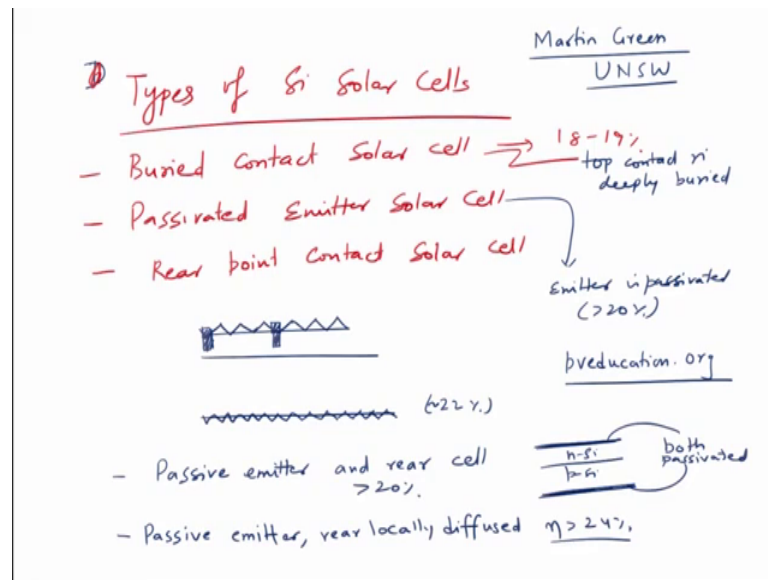 Martin Green
UNSW
Types of Si Solar Cells
- Buried Contact Solar cell ⇒ 18-19%
top contact is
deeply buried
- Passivated Emitter Solar Cell
- Rear point Contact Solar cell
Emitter is passivated
(>20%)
pveducation.org
(~22%)
- Passive emitter and rear cell
>20%.
n-Si
p-Si
both
passivated
- Passive emitter, rear locally diffused η > 24%.